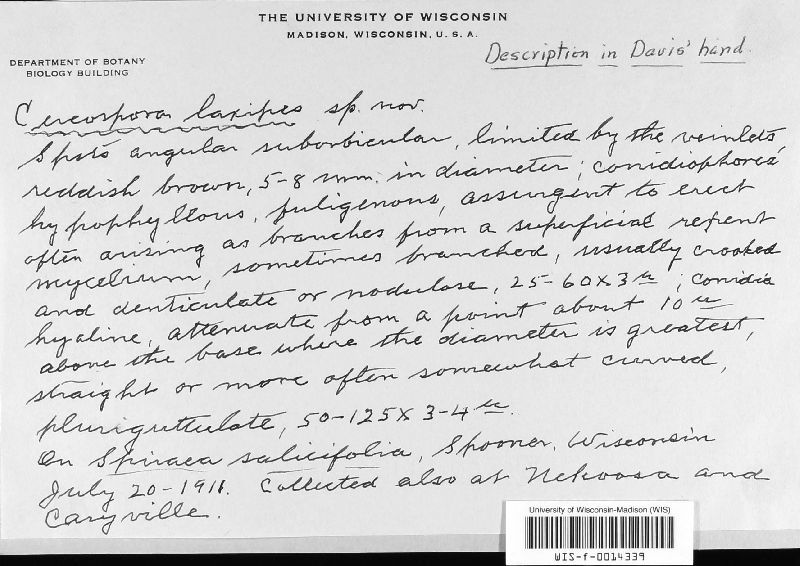 THE UNIVERSITY OF WISCONSIN
MADISON, WISCONSIN, U. S. A.
DEPARTMENT OF BOTANY
BIOLOGY BUILDING
Description in Davis' hand.
Cercospora laxipes sp. nov.
Spots angular suborbicular, limited by the veinlets,
reddish brown, 5-8 mm. in diameter; conidiophores
hypophyllous, fuligenous, assurgent to erect
often arising as branches from a superficial repent
mycelium, sometimes branched, usually crooked
and denticulate or nodulose, 25-60x3 u; conidia
hyaline, attenuate from a point about 10 u
above the base where the diameter is greatest,
straight or more often somewhat curved,
pluriguttulate, 50-125x3-4 u.
On Spiraea salicifolia, Spooner, Wisconsin
July 20-1911. Collected also at Nekoosa and
Caryville.
University of Wisconsin-Madison (WIS)
WIS-f-0014339